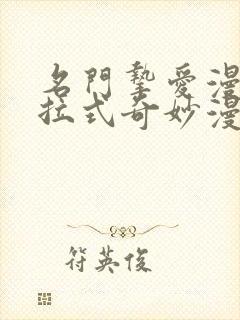 名門摯愛漫
拉式奇妙漫
符英俊